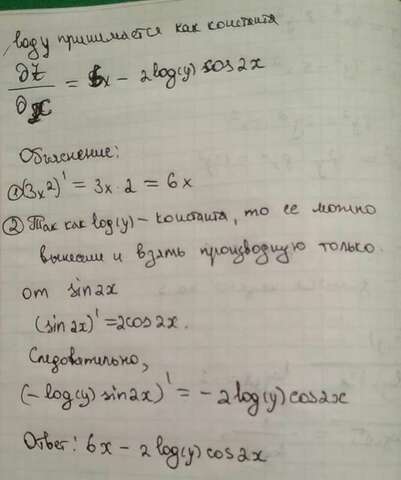 logy принимается как константа
∂z/∂x = 6x - 2log(y) cos2x
Объяснение:
① (3x²)' = 3x · 2 = 6x
② Так как log(y) - константа, то ее можно
вынести и взять производную только
от sin2x
(sin2x)' = 2cos2x.
Следовательно,
(-log(y) sin2x)' = -2log(y)cos2x
Ответ: 6x - 2log(y)cos2x